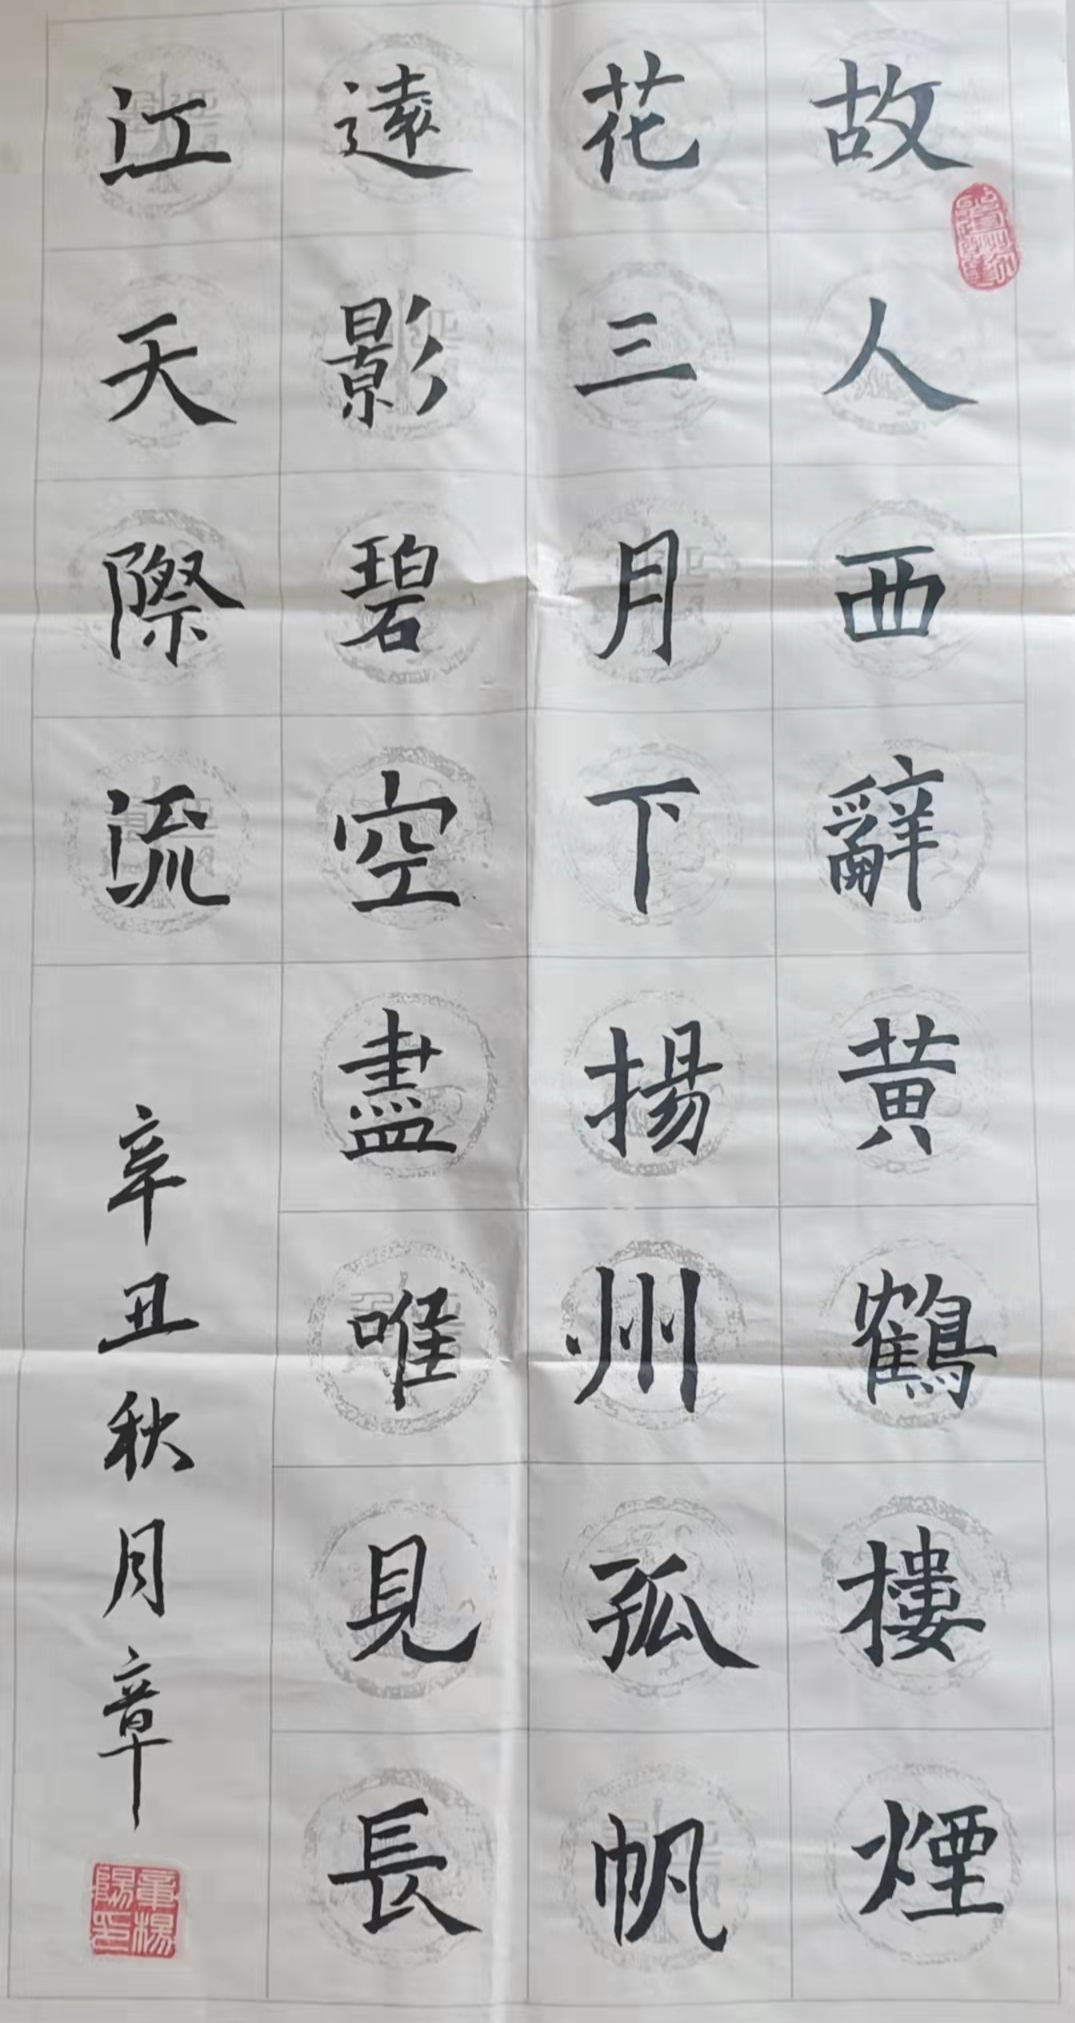 故人西辭黄鶴樓煙
花三月下揚州孤帆
遠影碧空盡唯見長
江天際流
辛丑秋月章
章楊陽印